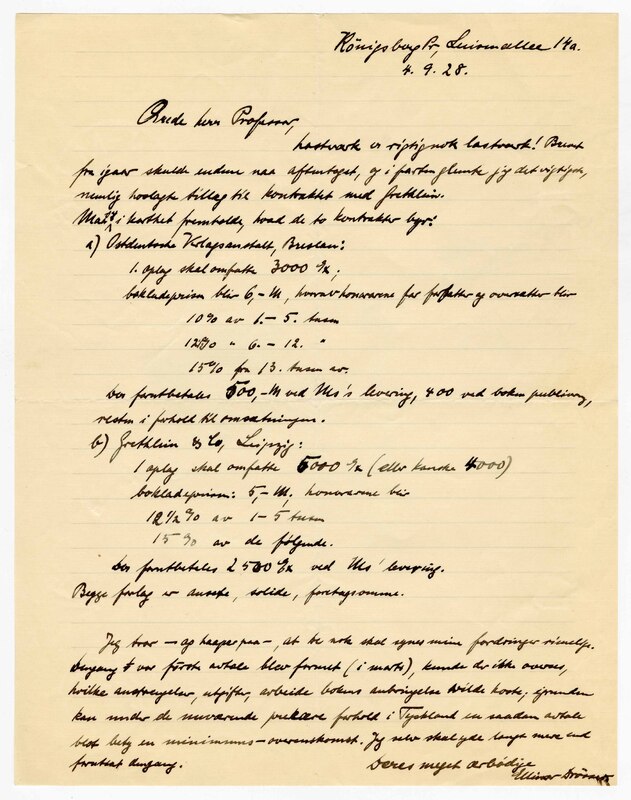 Königsberg Pr, Luisenallee 14a.
4. 9. 28.
Ærede herr Professor,
hastverk er rigtignok lastverk! Brevet
fra igaar skulde endnu naa aftentoget, og i farten glemte jeg det vigtigste,
nemlig at tillag til kontraktet med Grethlein.
i korthet fremholde, hvad de to kontrakter byr:
a) Ostdeutsche Verlagsanstalt, Breslau:
1. oplag skal omfatte 3000 Ex;
bokladeprisen blir 6,- M, honorarene for forfatter og oversætter blir
10% av 1. - 5. tusen
12% " 6. - 12. "
15% fra 13. tusen av.
Der forutbetales 500,- M ved Ms's levering, 400 ved boken publicering,
resten i forhold til omsætningen.
b) Grethlein & Co, Leipzig:
1 oplag skal omfatte 5000 Ex (eller kanske 4000)
bokladeprisen: 5,- M, honorarene blir
12 1/2 % av 1 - 5 tusen
15 % av de følgende.
Der forutbetales 2500 ved Ms' levering.
Begge forlag er ansete, solide, foretagsomme.
Jeg tror - og haaper paa -, at De nok skal synes mine fordringer rimelige.
Dengang vor første avtale blev formet (i marts), kunde der ikke oversees,
hvilke anstrengelser, utgifter, arbeide bokens anbringelse vilde koste; igrunden
kan under de nuværende prekære forhold i Tyskland en saadan avtale
blot bety en minimums-overenskomst. Jeg selv skal yde langt mere end
forutsat dengang.
Deres meget ærbødige
Ellinor Drösser